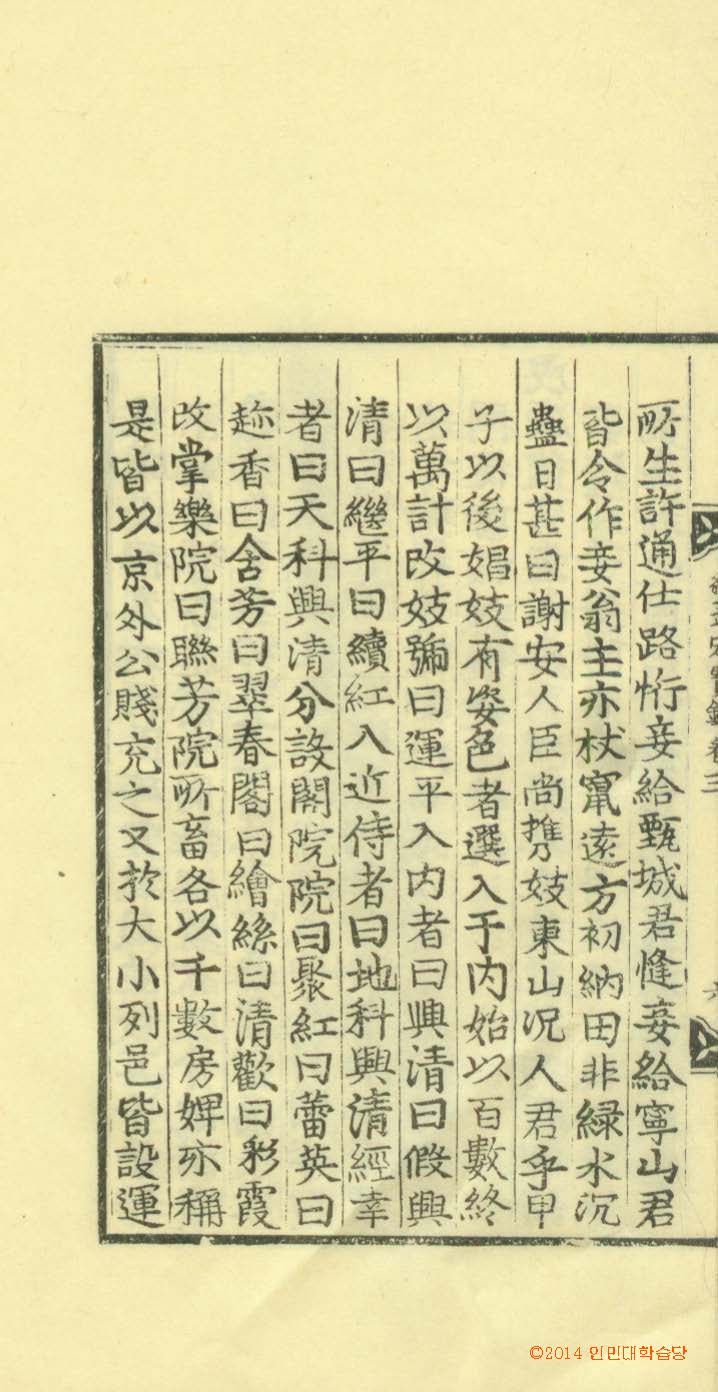 所生許通仕路㤚妾給甄城君㦀妾給寧山君
皆令作妾翁主亦杖竄遠方初納田非綠水沉
蠱日甚曰謝安人臣尚携妓東山况人君乎甲
子以後娼妓有姿色者選入于内始以百數終
以萬計改妓號曰運平入内者曰興清曰假興
清曰繼平曰續紅入近侍者曰地科興清經幸
者曰天科興清分設閣院院曰聚紅曰蕾英曰
趂香曰含芳曰翠春閣曰繪絲曰清歡曰彩霞
改掌樂院曰聯芳院所畜各以千數房婢亦稱
是皆以京外公賤充之又於大小列邑皆設運
實錄卷三
©2014 인민대학습당